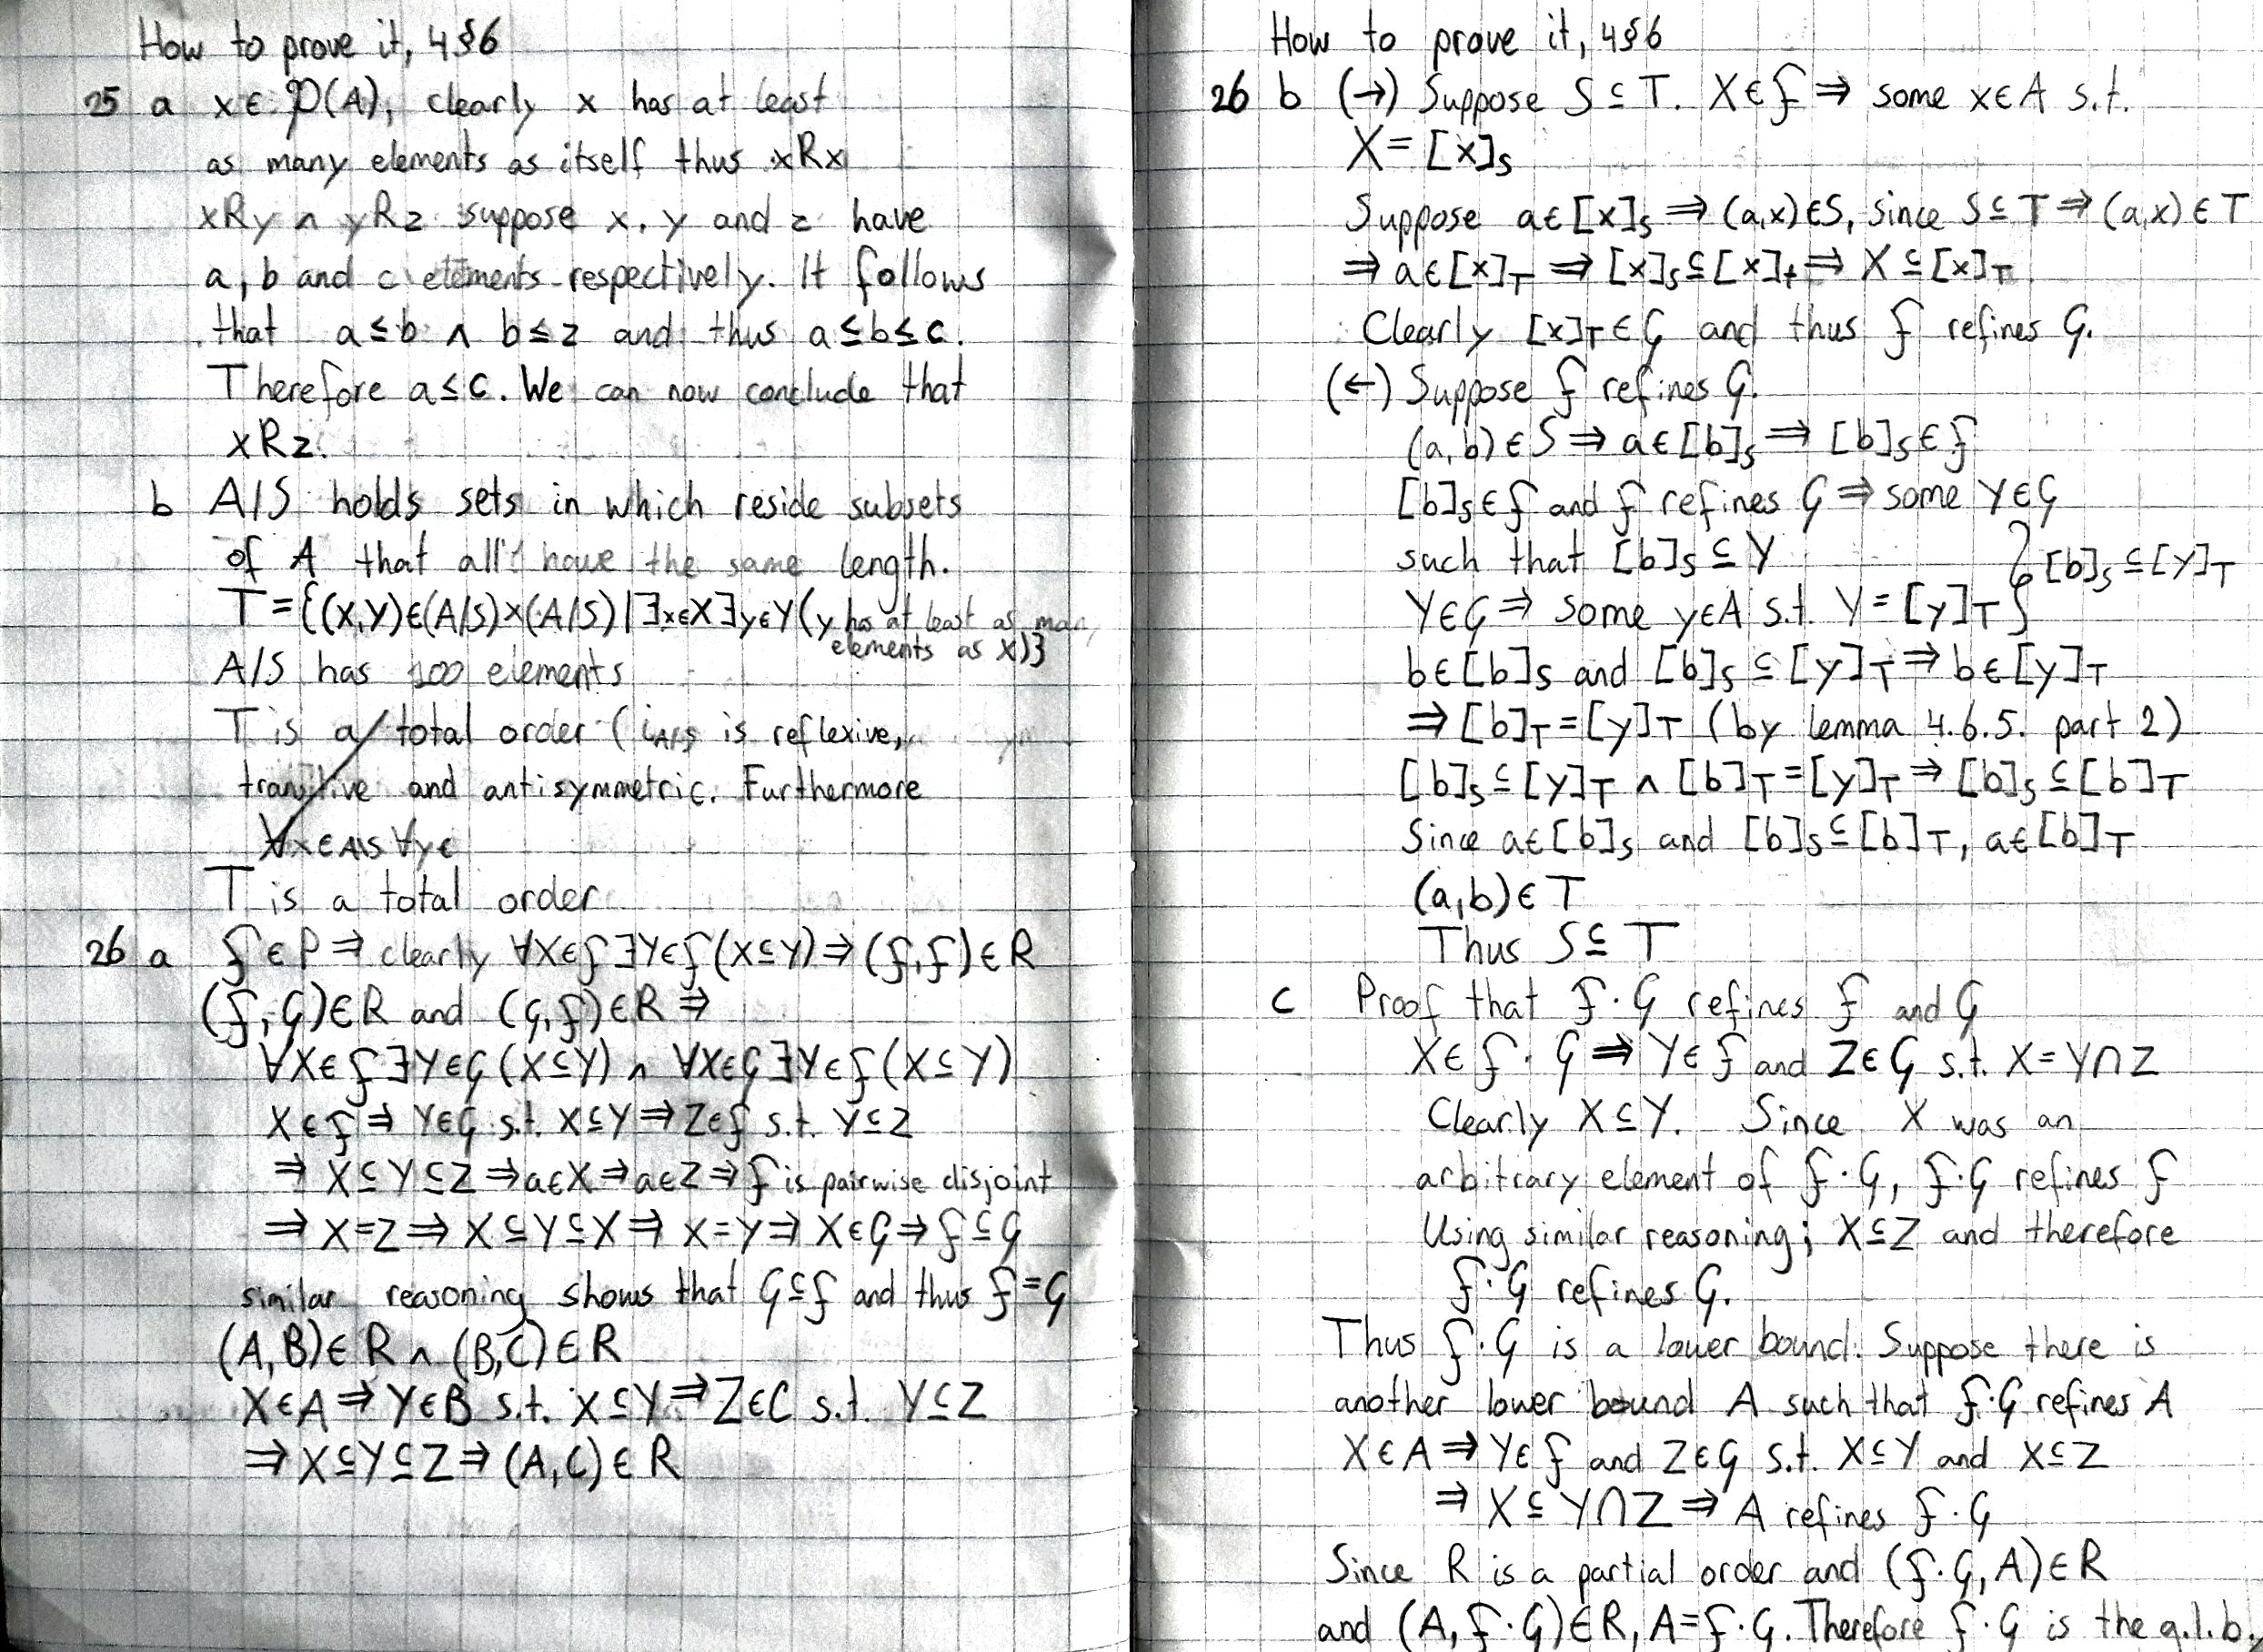 How to prove it, 4§6
25 a x∈ ℘(A), clearly x has at least
as many elements as itself thus xRx
xRy ∧ yRz suppose x, y and z have
a, b and c elements respectively. It follows
that a≤b ∧ b≤z and thus a≤b≤c.
Therefore a≤c. We can now conclude that
xRz.
b A/S holds sets in which reside subsets
of A that all have the same length.
T={(X,Y)∈(A/S)×(A/S)|∃x∈X∃y∈Y(y has at least as many
elements as x)}
A/S has 100 elements
T is a total order (i_A/S is reflexive,
transitive and antisymmetric. Furthermore
∀x∈A/S ∀y∈
T is a total order
26 a F∈P ⇒ clearly ∀X∈F∃Y∈F(X⊆Y)⇒(F,F)∈R
(F,G)∈R and (G,F)∈R ⇒
∀X∈F∃Y∈G(X⊆Y) ∧ ∀X∈G∃Y∈F(X⊆Y)
X∈F⇒ Y∈G s.t. X⊆Y⇒Z∈F s.t. Y⊆Z
⇒ X⊆Y⊆Z⇒a∈X⇒a∈Z⇒F is pairwise disjoint
⇒X=Z⇒X⊆Y⊆X⇒X=Y⇒X∈G⇒F⊆G
similar reasoning shows that G⊆F and thus F=G
(A,B)∈R ∧ (B,C)∈R
X∈A⇒Y∈B s.t. X⊆Y⇒Z∈C s.t. Y⊆Z
⇒X⊆Y⊆Z⇒(A,C)∈R
How to prove it, 4§6
26 b (→) Suppose S⊆T. X∈F⇒ some x∈A s.t.
X=[x]S
Suppose a∈[x]S⇒(a,x)∈S, since S⊆T⇒(a,x)∈T
⇒a∈[x]T⇒[x]S⊆[x]t⇒X⊆[x]T
Clearly [x]T∈G and thus F refines G.
(←) Suppose F refines G.
(a,b)∈S⇒a∈[b]S⇒[b]S∈F
[b]S∈F and F refines G⇒some Y∈G
such that [b]S⊆Y
[b]S⊆[y]T
Y∈G⇒ some y∈A s.t. Y=[y]T
b∈[b]S and [b]S⊆[y]T⇒b∈[y]T
⇒[b]T=[y]T (by lemma 4.6.5. part 2)
[b]S⊆[y]T ∧ [b]T=[y]T⇒[b]S⊆[b]T
Since a∈[b]S and [b]S⊆[b]T, a∈[b]T
(a,b)∈T
Thus S⊆T
c Proof that F·G refines F and G
X∈F·G⇒Y∈F and Z∈G s.t. X=Y∩Z
Clearly X⊆Y. Since X was an
arbitrary element of F·G, F·G refines F
Using similar reasoning; X⊆Z and therefore
F·G refines G.
Thus F·G is a lower bound. Suppose there is
another lower bound A such that F·G refines A
X∈A⇒Y∈F and Z∈G s.t. X⊆Y and X⊆Z
⇒X⊆Y∩Z⇒A refines F·G
Since R is a partial order and (F·G,A)∈R
and (A,F·G)∈R, A=F·G. Therefore F·G is the g.l.b.